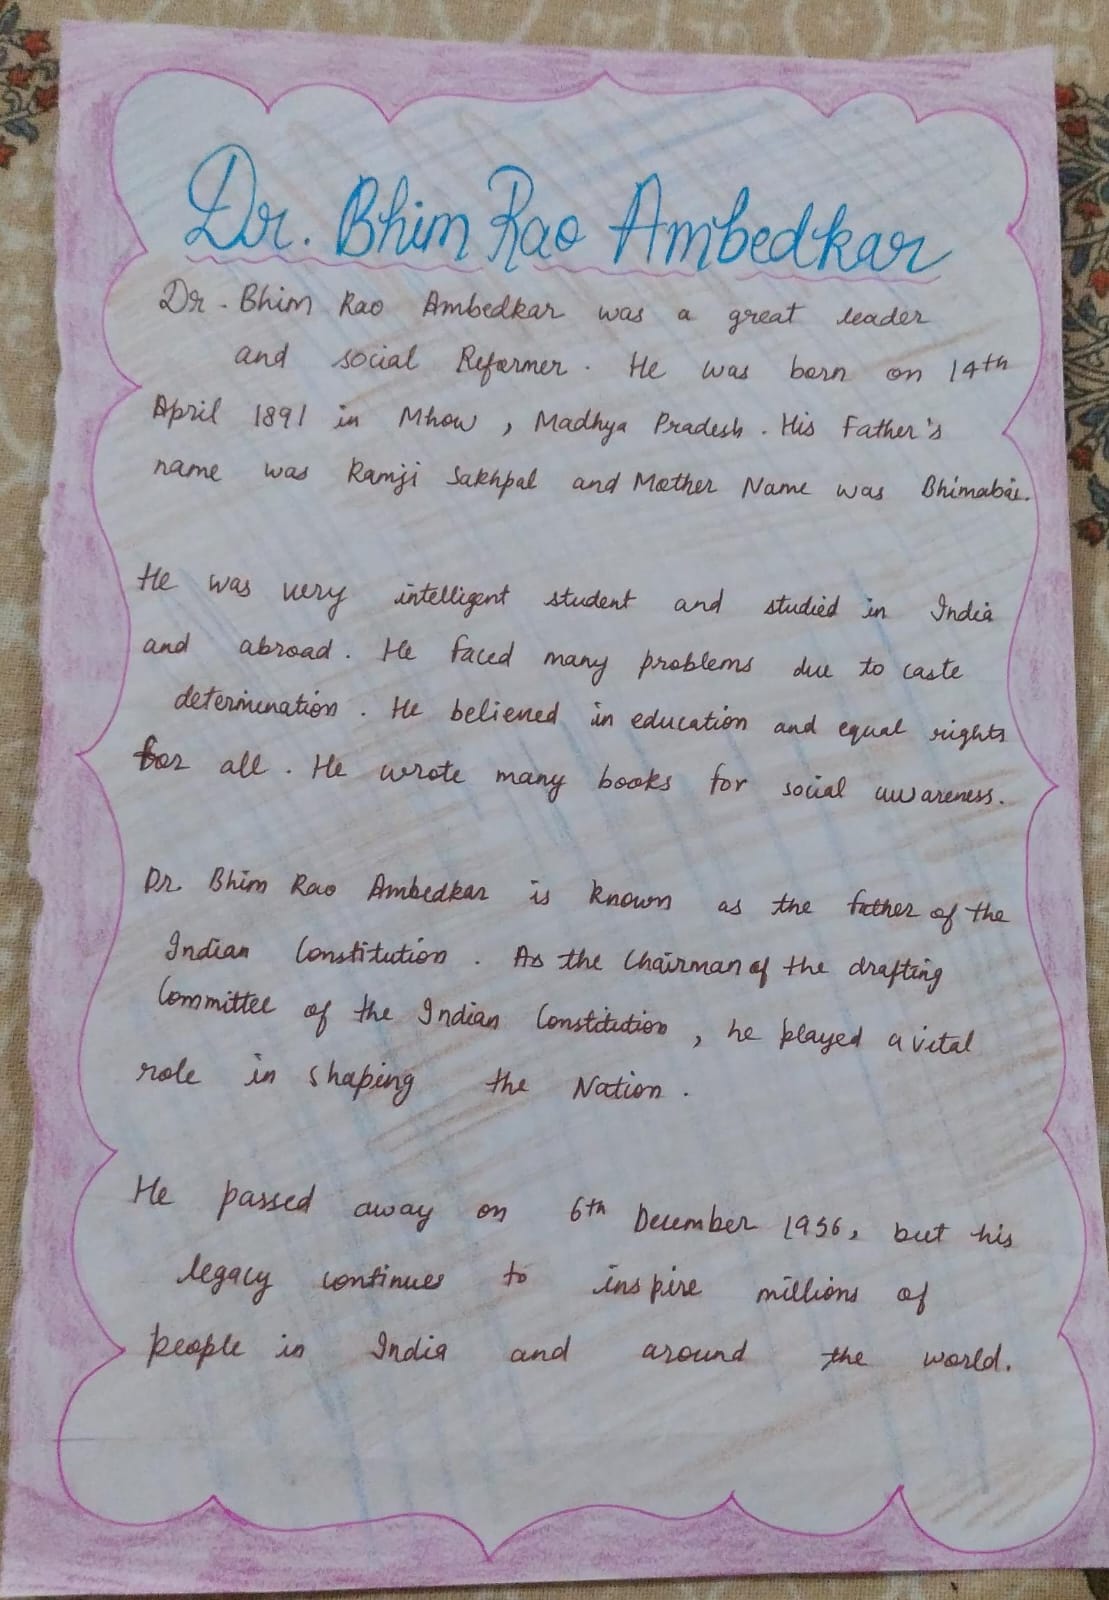 Dr. Bhim Rao Ambedkar
Dr. Bhim Rao Ambedkar was a great leader
and social Reformer. He was born on 14th
April 1891 in Mhow, Madhya Pradesh. His Father's
name was Ramji Sakhpal and Mother Name was Bhimabai.
He was very intelligent student and studied in India
and abroad. He faced many problems due to caste
determination. He believed in education and equal rights
for all. He wrote many books for social awareness.
Dr. Bhim Rao Ambedkar is known as the father of the
Indian Constitution. As the Chairman of the drafting
Committee of the Indian Constitution, he played a vital
role in shaping the Nation.
He passed away on 6th December 1956, but his
legacy continues to inspire millions of
people in India and around the world.